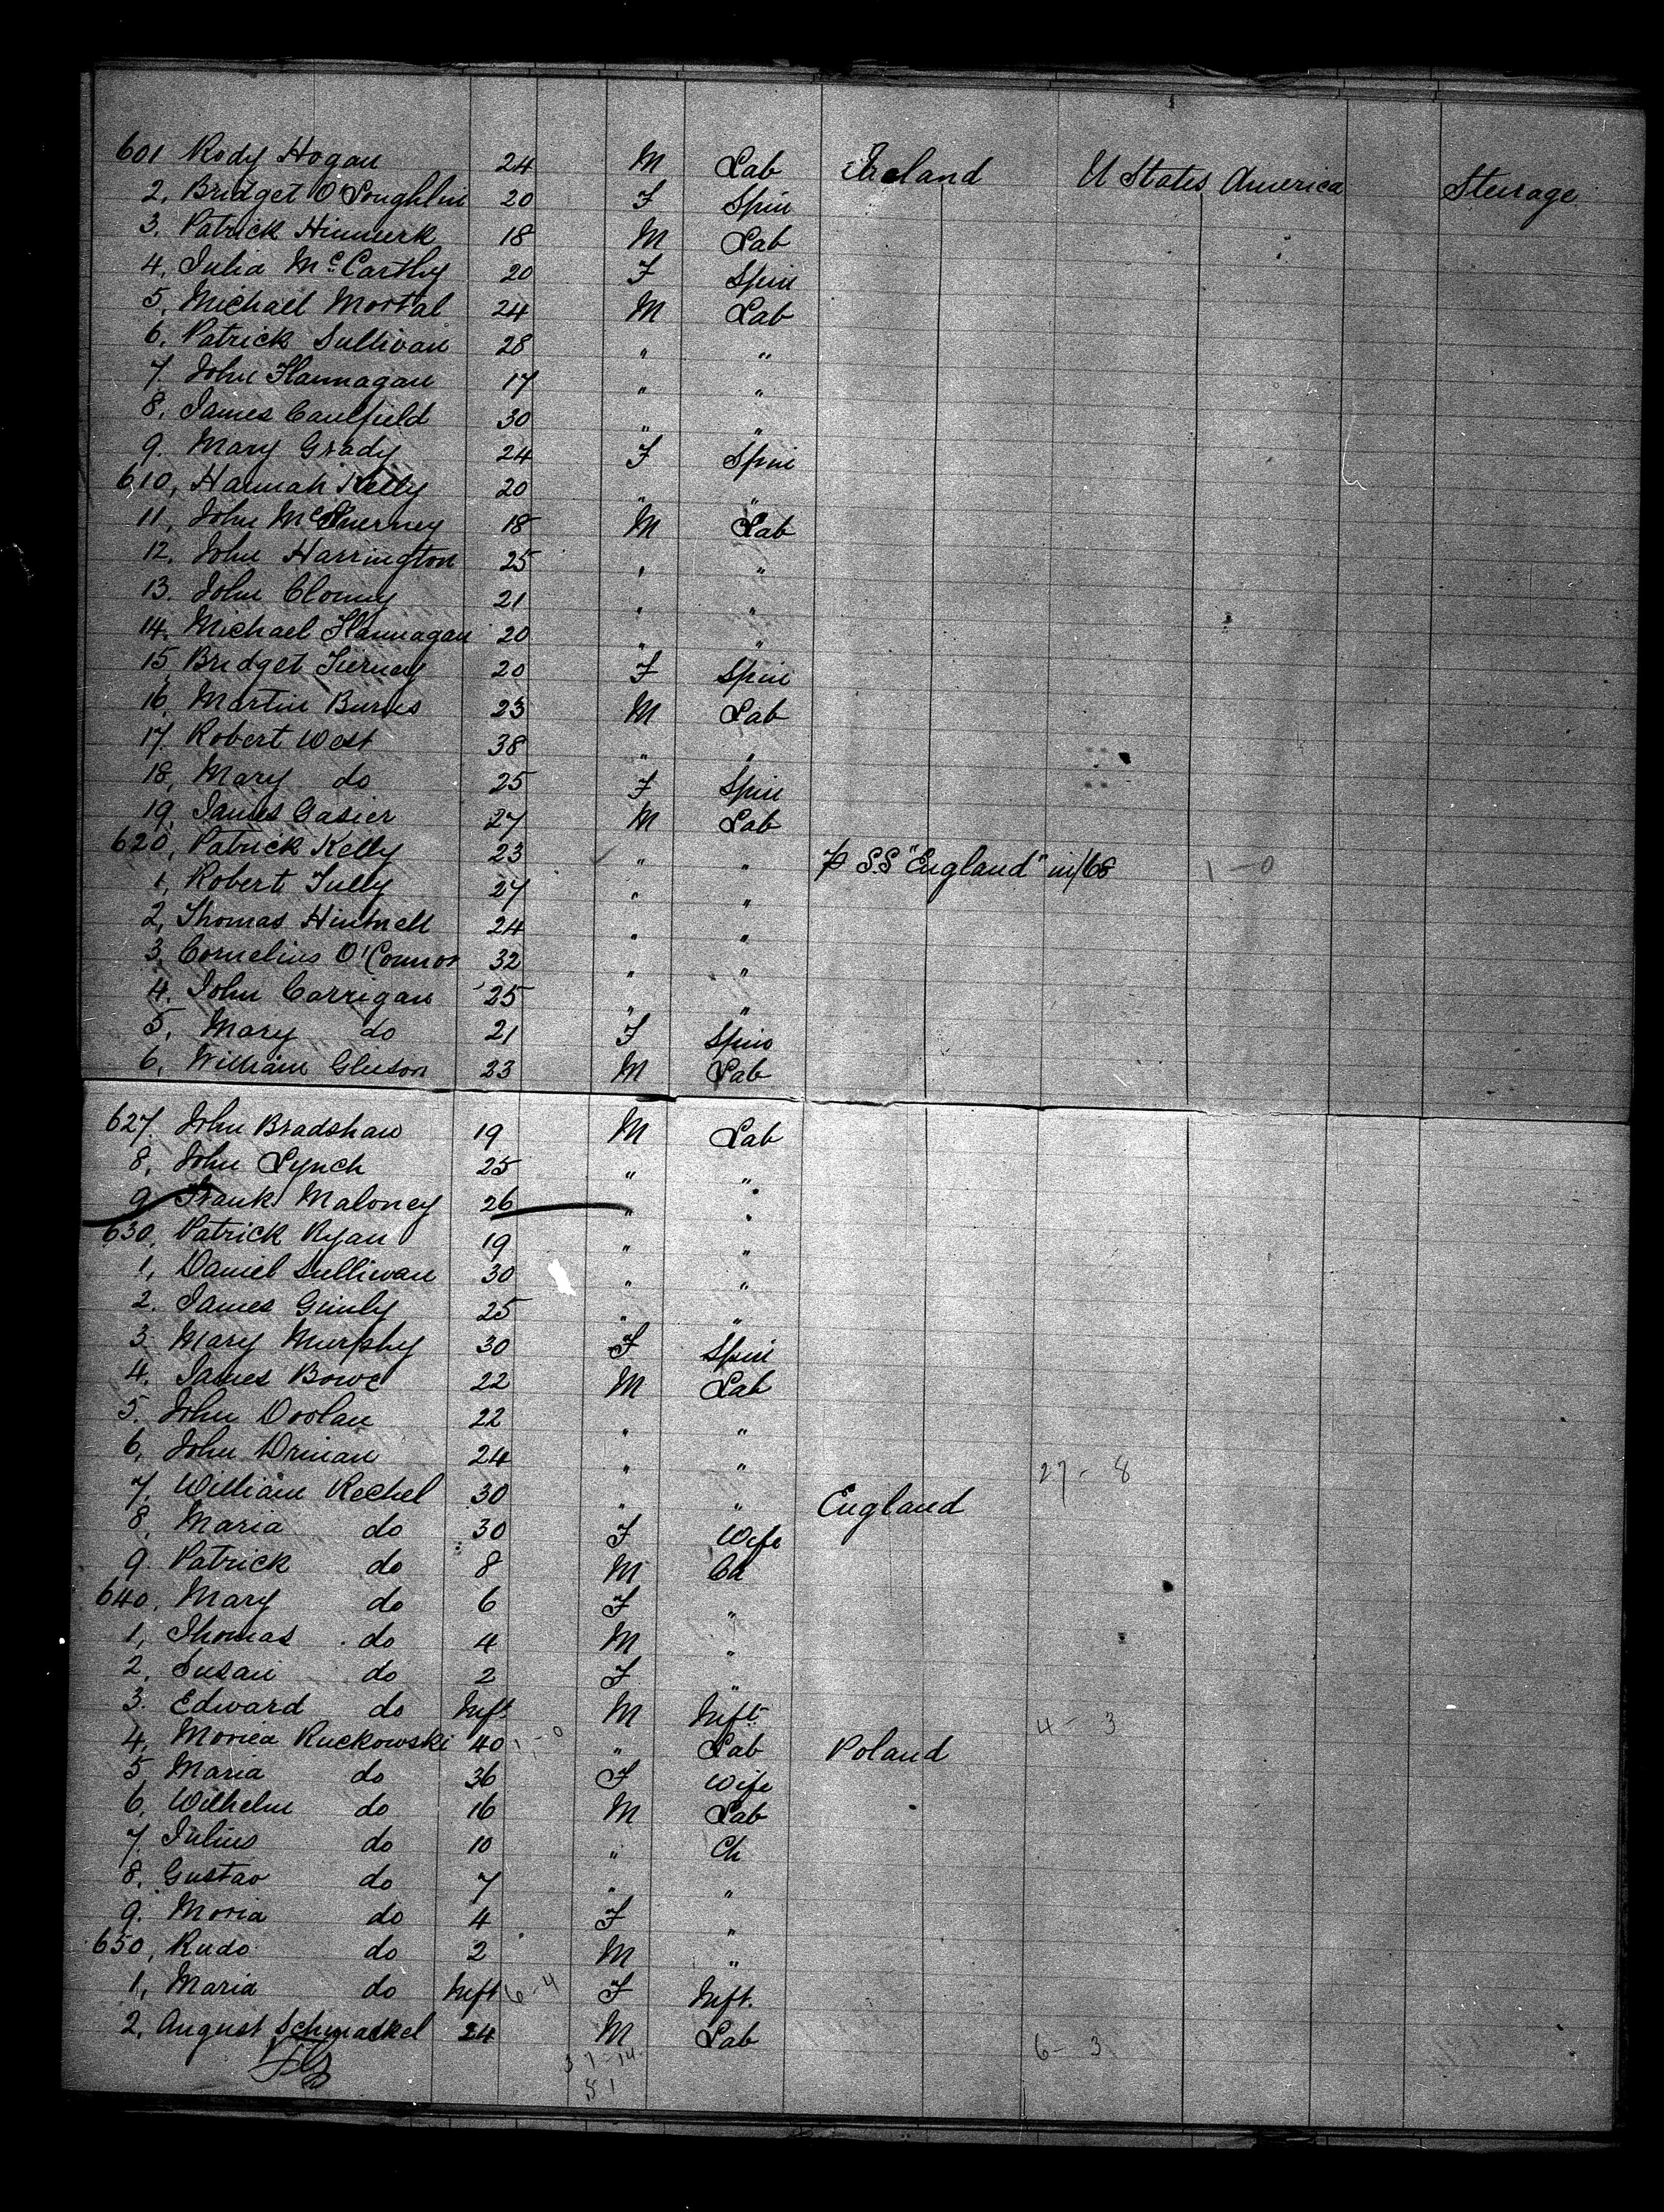 601 Rody Hogan 24 M Lab Ireland U States America Steerage
2, Bridget O'Loughlin 20 F Spin
3, Patrick 18 M Lab
4, Julia McCarthy 20 F Spin
5, Michael Mortal 24 M Lab
6, Patrick Sullivan 28 " "
7, John Flannagan 17 " "
8, James Caulfield 30 " "
9. Mary Grady 24 F Spin
610, Hannah Kelly 20 " "
11, John McInerney 18 M Lab
12, John Harrington 25 " "
13. John Clonny 21 " "
14, Michael Flannagan 20 " "
15, Bridget Tierney 20 F Spin
16, Martin Burns 23 M Lab
17. Robert West 38 " "
18, Mary do 25 F Spin
19, James Casier 27 M Lab
620, Patrick Kelly 23 " " p S.S "England" in/68 1-0
1, Robert Tully 27 " "
2, Thomas 24 " "
3, Cornelius O'Connor 32 " "
4. John Corrigan 25 " "
5, Mary do 21 F Spin
6, William Gleeson 23 M Lab
627. John Bradshaw 19 M Lab
8, John Lynch 25 " "
9 Frank Maloney 26 " "
630, Patrick Ryan 19 " "
1, Daniel Sullivan 30 " "
2. James 25 " "
3. Mary Murphy 30 F Spin
4. James Bowe 22 M Lab
5. John Doolan 22 " "
6, John 24 " " 27-8
7, William Rechel 30 " " England
8, Maria do 30 F Wife
9. Patrick do 8 M Ch
640, Mary do 6 F "
1, Thomas do 4 M "
2, Susan do 2 F "
3. Edward do Inft M Inft 4-3
4, Moriea Ruckowski 40 1-0 " Lab Poland
5, Maria do 36 F Wife
6, Wilhelm do 16 M Lab
7. Julius do 10 " Ch
8. Gustav do 7 " "
9. Moria do 4 F "
650, Rudo do 2 M "
1, Maria do Inft 6-4 F Inft.
2, August Schmackel 24 M Lab 6-3
37-14
51